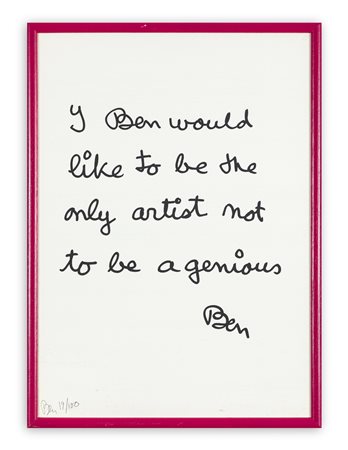 I Ben would
like to be the
only artist not
to be a genious
Ben
Ben 19/100